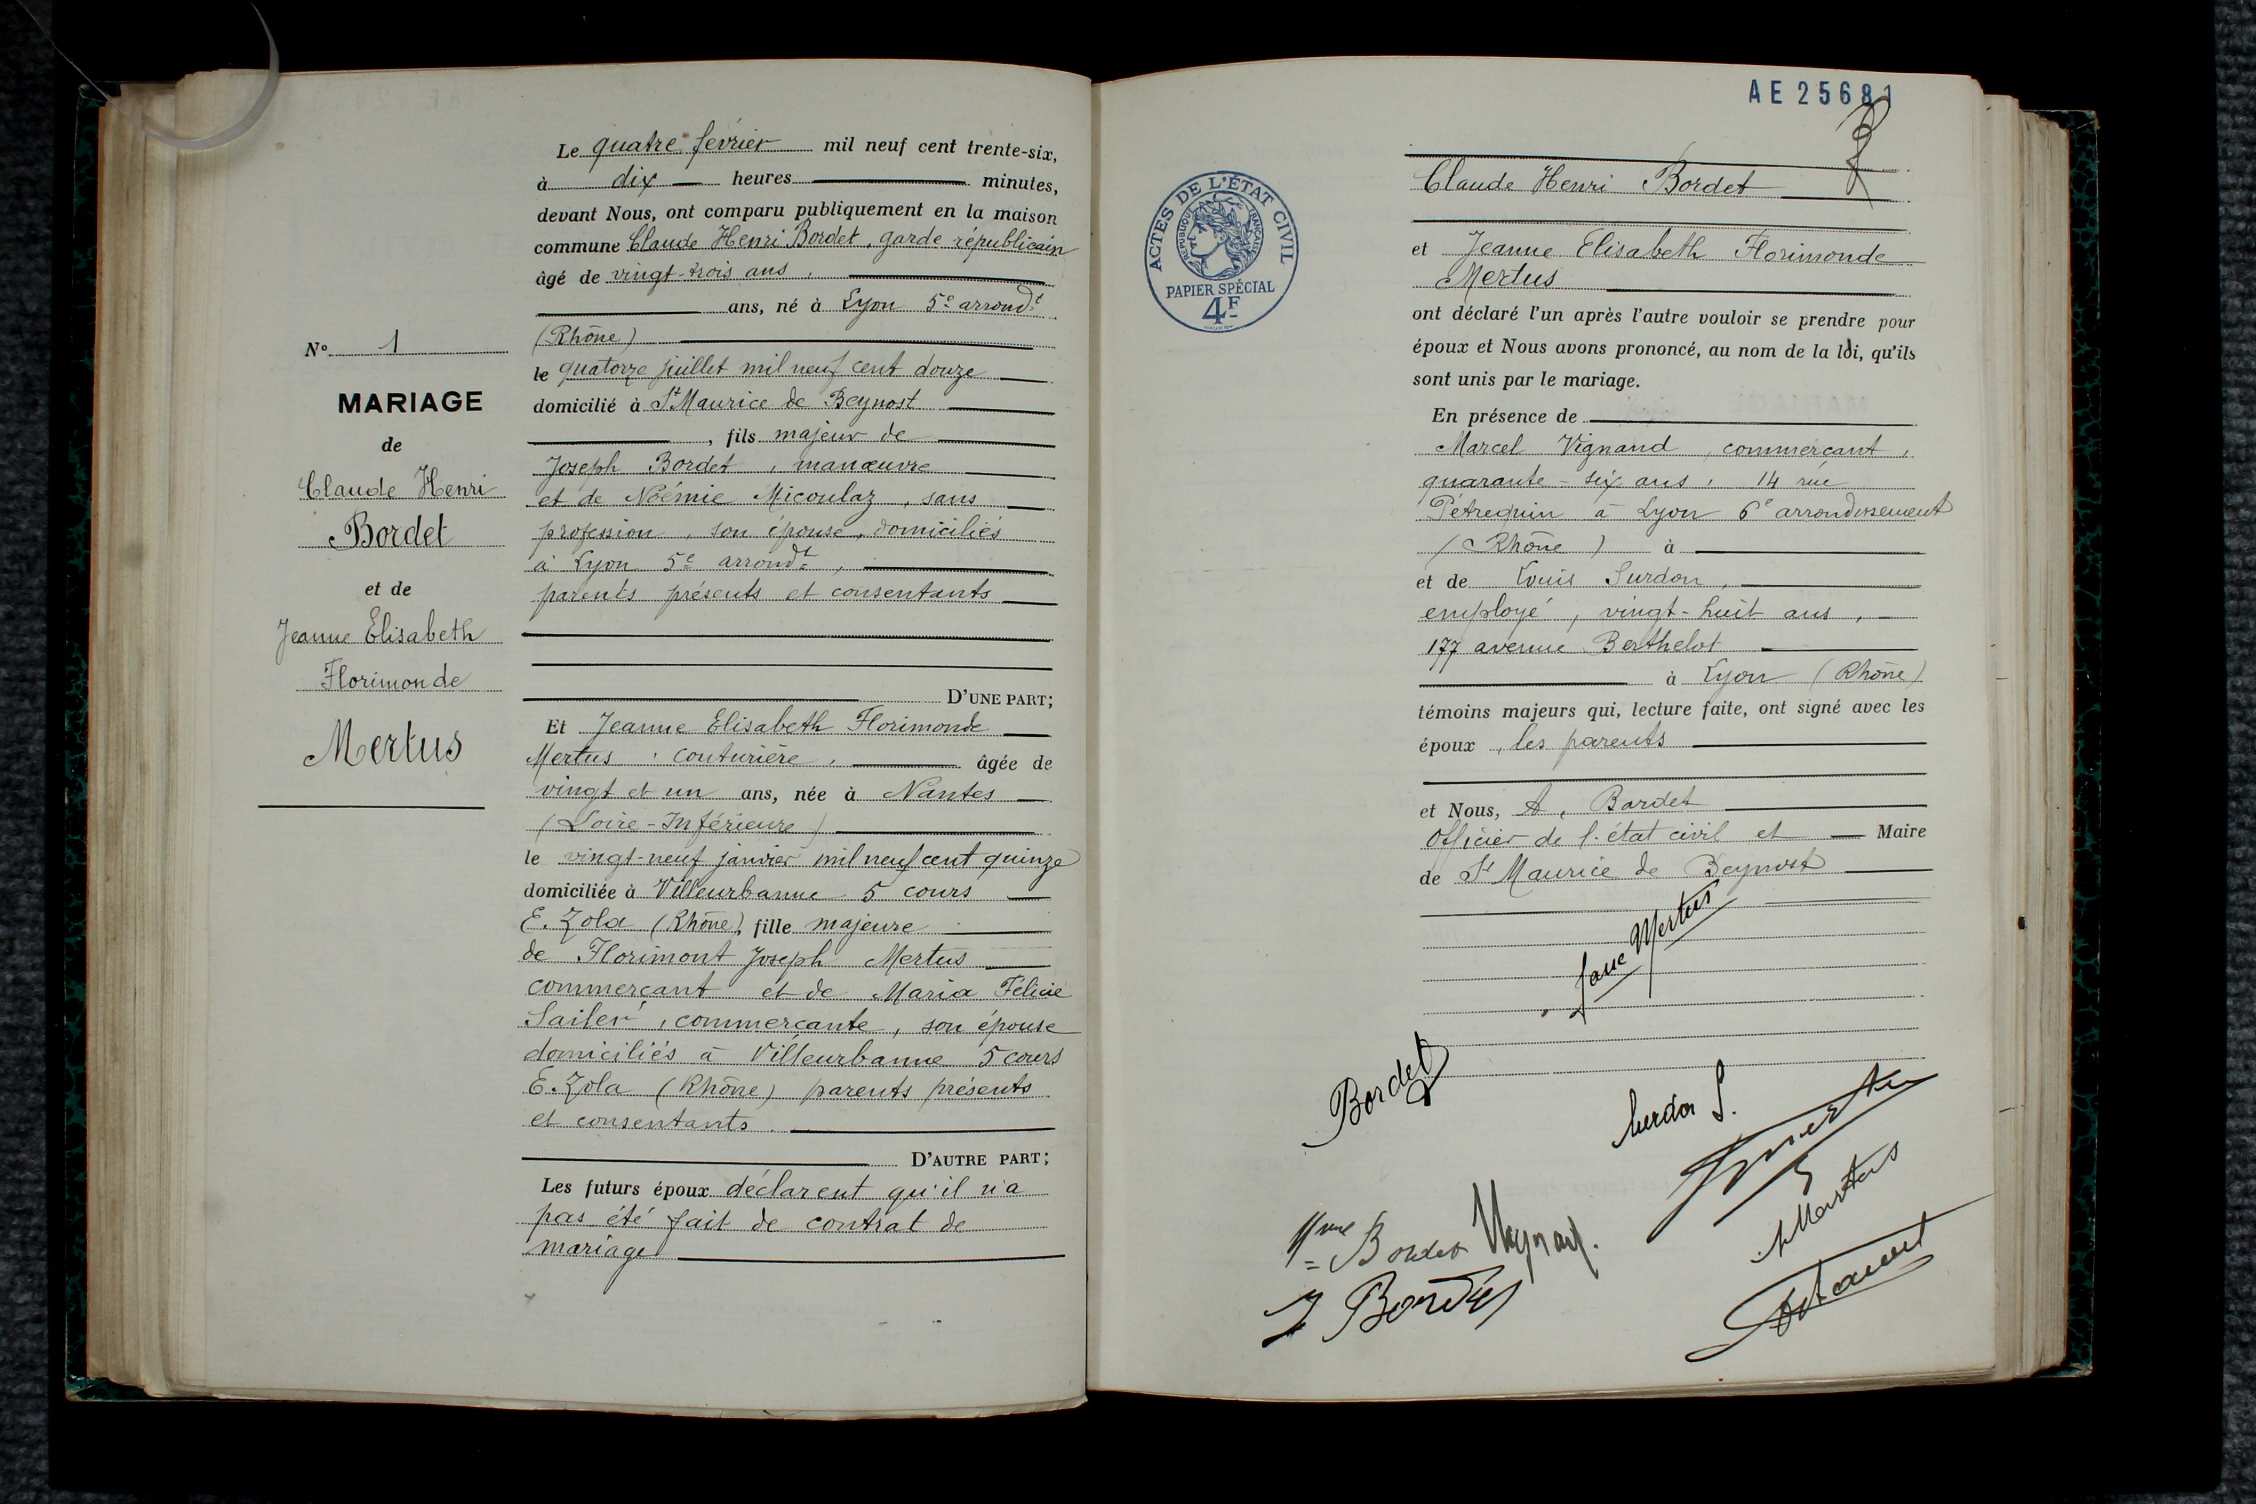 Le quatre février mil neuf cent trente-six,
à dix heures minutes,
devant Nous, ont comparu publiquement en la maison
commune Claude Henri Bordet, garde républicain
âgé de vingt-trois ans,
ans, né à Lyon 5e arrondt
(Rhône)
le quatorze juillet mil neuf cent douze
domicilié à St Maurice de Beynost
, fils majeur de
Joseph Bordet, manœuvre
et de Noémie Micoulaz, sans
profession, son épouse, domiciliés
à Lyon 5e arrondt,
parents présents et consentants
D'UNE PART;
Et Jeanne Elisabeth Florimonde
Mertus, couturière, âgée de
vingt et un ans, née à Nantes
(Loire-Inférieure)
le vingt-neuf janvier mil neuf cent quinze
domiciliée à Villeurbanne 5 cours
E. Zola (Rhône), fille majeure
de Florimont Joseph Mertus
commerçant et de Maria Félicie
Sailer, commerçante, son épouse
domiciliés à Villeurbanne 5 cours
E. Zola (Rhône) parents présents
et consentants.
D'AUTRE PART;
Les futurs époux déclarent qu'il n'a
pas été fait de contrat de
mariage
No 1
MARIAGE
de
Claude Henri
Bordet
et de
Jeanne Elisabeth
Florimonde
Mertus
AE 25681
ACTES DE L'ÉTAT CIVIL
RÉPUBLIQUE FRANÇAISE
PAPIER SPÉCIAL
4F
Claude Henri Bordet
et Jeanne Elisabeth Florimonde
Mertus
ont déclaré l'un après l'autre vouloir se prendre pour
époux et Nous avons prononcé, au nom de la loi, qu'ils
sont unis par le mariage.
En présence de
Marcel Vignand, commerçant,
quarante-six ans, 14 rue
Pétrequin à Lyon 6e arrondissement
(Rhône) à
et de Louis Surdon,
employé, vingt-huit ans,
177 avenue Berthelot
à Lyon (Rhône)
témoins majeurs qui, lecture faite, ont signé avec les
époux, les parents
et Nous, A. Bardet
Officier de l'état civil et Maire
de St Maurice de Beynost
Jane Mertus
Bordet
Surdon L.
Mertus
Mme Bordet
J Bordet